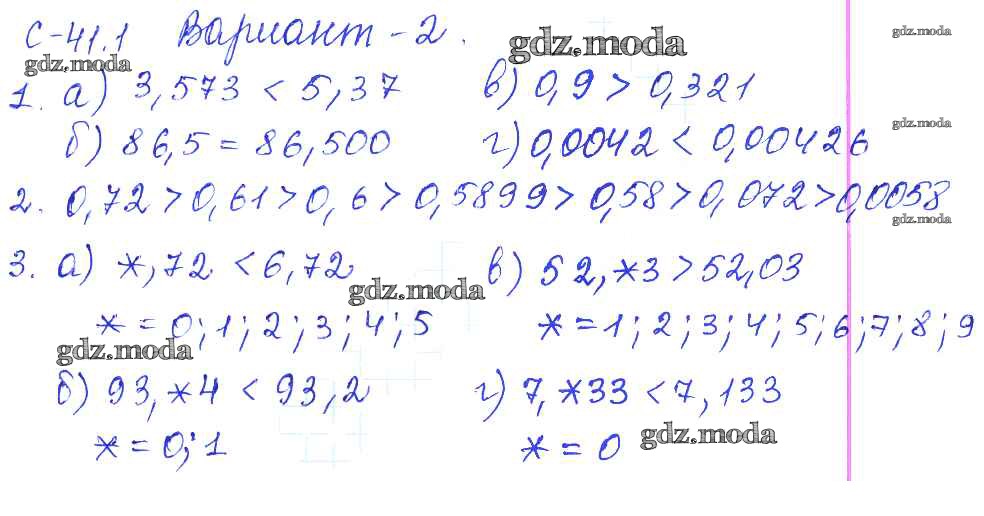 С-41.1 Вариант-2.
gdz.moda gdz.moda gdz.moda
1. а) 3,573 < 5,37 в) 0,9 > 0,321
б) 86,5 = 86,500 г) 0,0042 < 0,00426
gdz.moda
2. 0,72 > 0,61 > 0,6 > 0,5899 > 0,58 > 0,072 > 0,0058
gdz.moda
3. а) *,72 < 6,72 в) 52,*3 > 52,03
gdz.moda
* = 0; 1; 2; 3; 4; 5 * = 1; 2; 3; 4; 5; 6; 7; 8; 9
gdz.moda
б) 93,*4 < 93,2 г) 7,*33 < 7,133
* = 0; 1 * = 0
gdz.moda